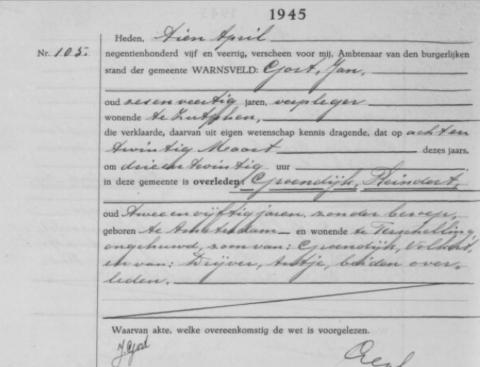 1945
Heden, tien April
Nr. 105. negentienhonderd vijf en veertig, verscheen voor mij, Ambtenaar van den burgerlijken
stand der gemeente WARNSVELD: Gort, Jan,
oud zesenveertig jaren, verpleger
wonende te Zutphen,
die verklaarde, daarvan uit eigen wetenschap kennis dragende, dat op achten
twintig Maart dezes jaars,
om drieentwintig uur
in deze gemeente is overleden: Groendijk, Reindert,
oud tweeenvijftig jaren, zonder beroep,
geboren te Amsterdam en wonende te Terschelling,
ongehuwd, zoon van: Groendijk,
en van: Drijver, Antje, beiden over-
leden.
Waarvan akte, welke overeenkomstig de wet is voorgelezen.
J Gort